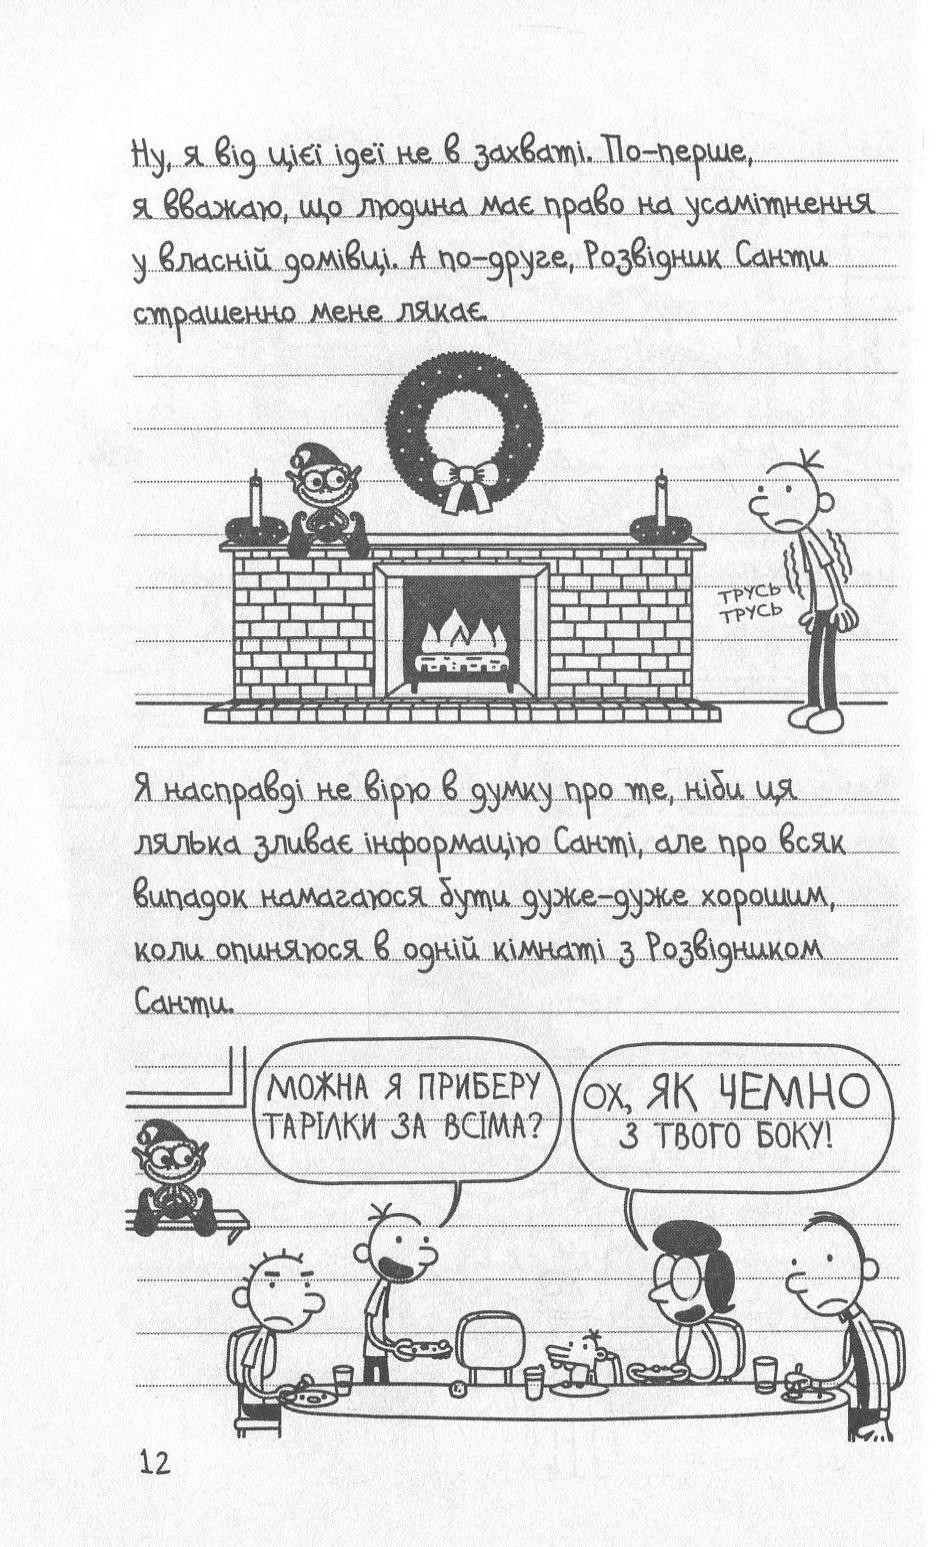 Ну, я від цієї ідеї не в захваті. По-перше,
я вважаю, що людина має право на усамітнення
у власній домівці. А по-друге, Розвідник Санти
страшенно мене лякає.
ТРУСЬ
ТРУСЬ
Я насправді не вірю в думку про те, ніби ця
лялька зливає інформацію Санті, але про всяк
випадок намагаюся бути дуже-дуже хорошим,
коли опиняюся в одній кімнаті з Розвідником
Санти.
МОЖНА Я ПРИБЕРУ
ТАРІЛКИ ЗА ВСІМА?
ОХ, ЯК ЧЕМНО
З ТВОГО БОКУ!
12